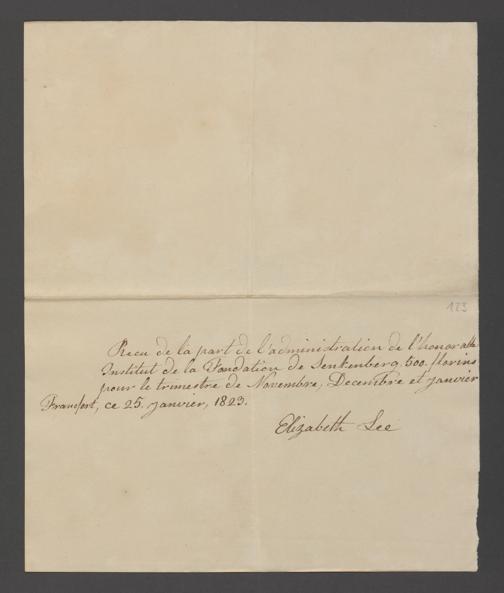 123
Recu de la part de l'administration de l'honorable
Institut de la Fondation de Senkenberg. 500. florins
pour le trimestre de Novembre, Decembre et janvier
Francfort, ce 25. janvier, 1823.
Elizabeth Lee